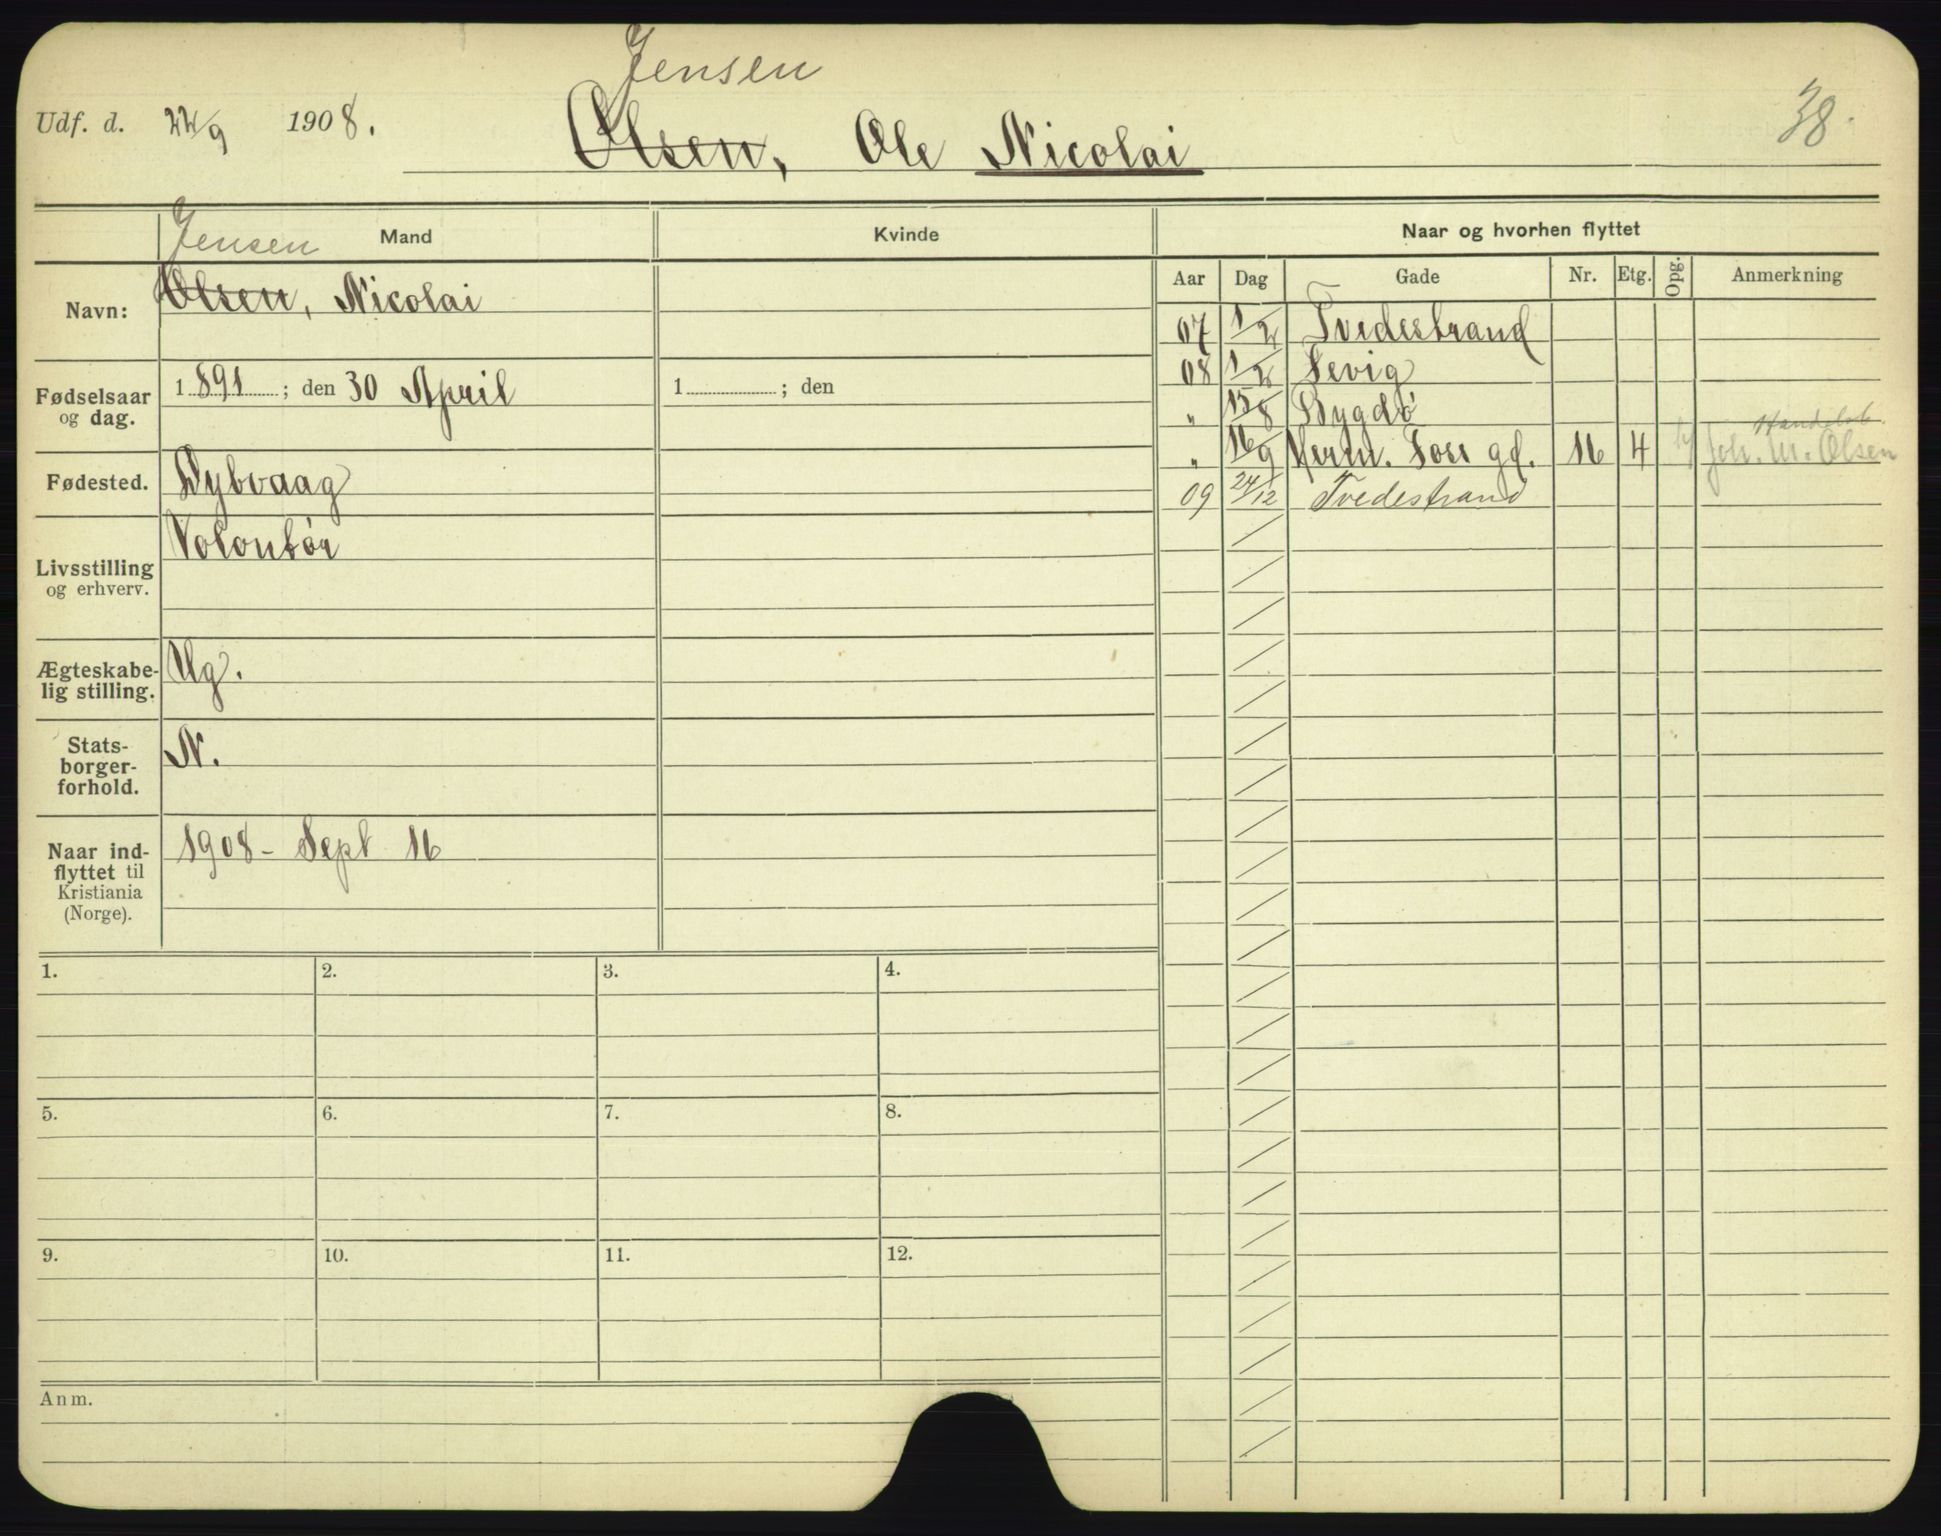 Jensen
Udf. d. 22/9 1908. Olsen, Ole Nicolai 38.
Jensen Mand Kvinde Naar og hvorhen flyttet
Aar Dag Gade Nr. Etg. Opg. Anmerkning
Navn: Olsen, Nicolai
07 1/2 Tvedestrand
08 1/2 Sevig
" 15/8 Bygdö
" 16/9 Herm. Foss gd. 16 4 Joh. M. Olsen
09 24/12 Tvedestrand
Fødselsaar
og dag.
1891; den 30 April 1 ; den
Fødested. Dybvaag
Livsstilling
og erhverv.
Volontör
Ægteskabe-
lig stilling.
Ug.
Stats-
borger-
forhold.
N.
Naar ind-
flyttet til
Kristiania
(Norge).
1908 - Sept 16
1. 2. 3. 4.
5. 6. 7. 8.
9. 10. 11. 12.
Anm.